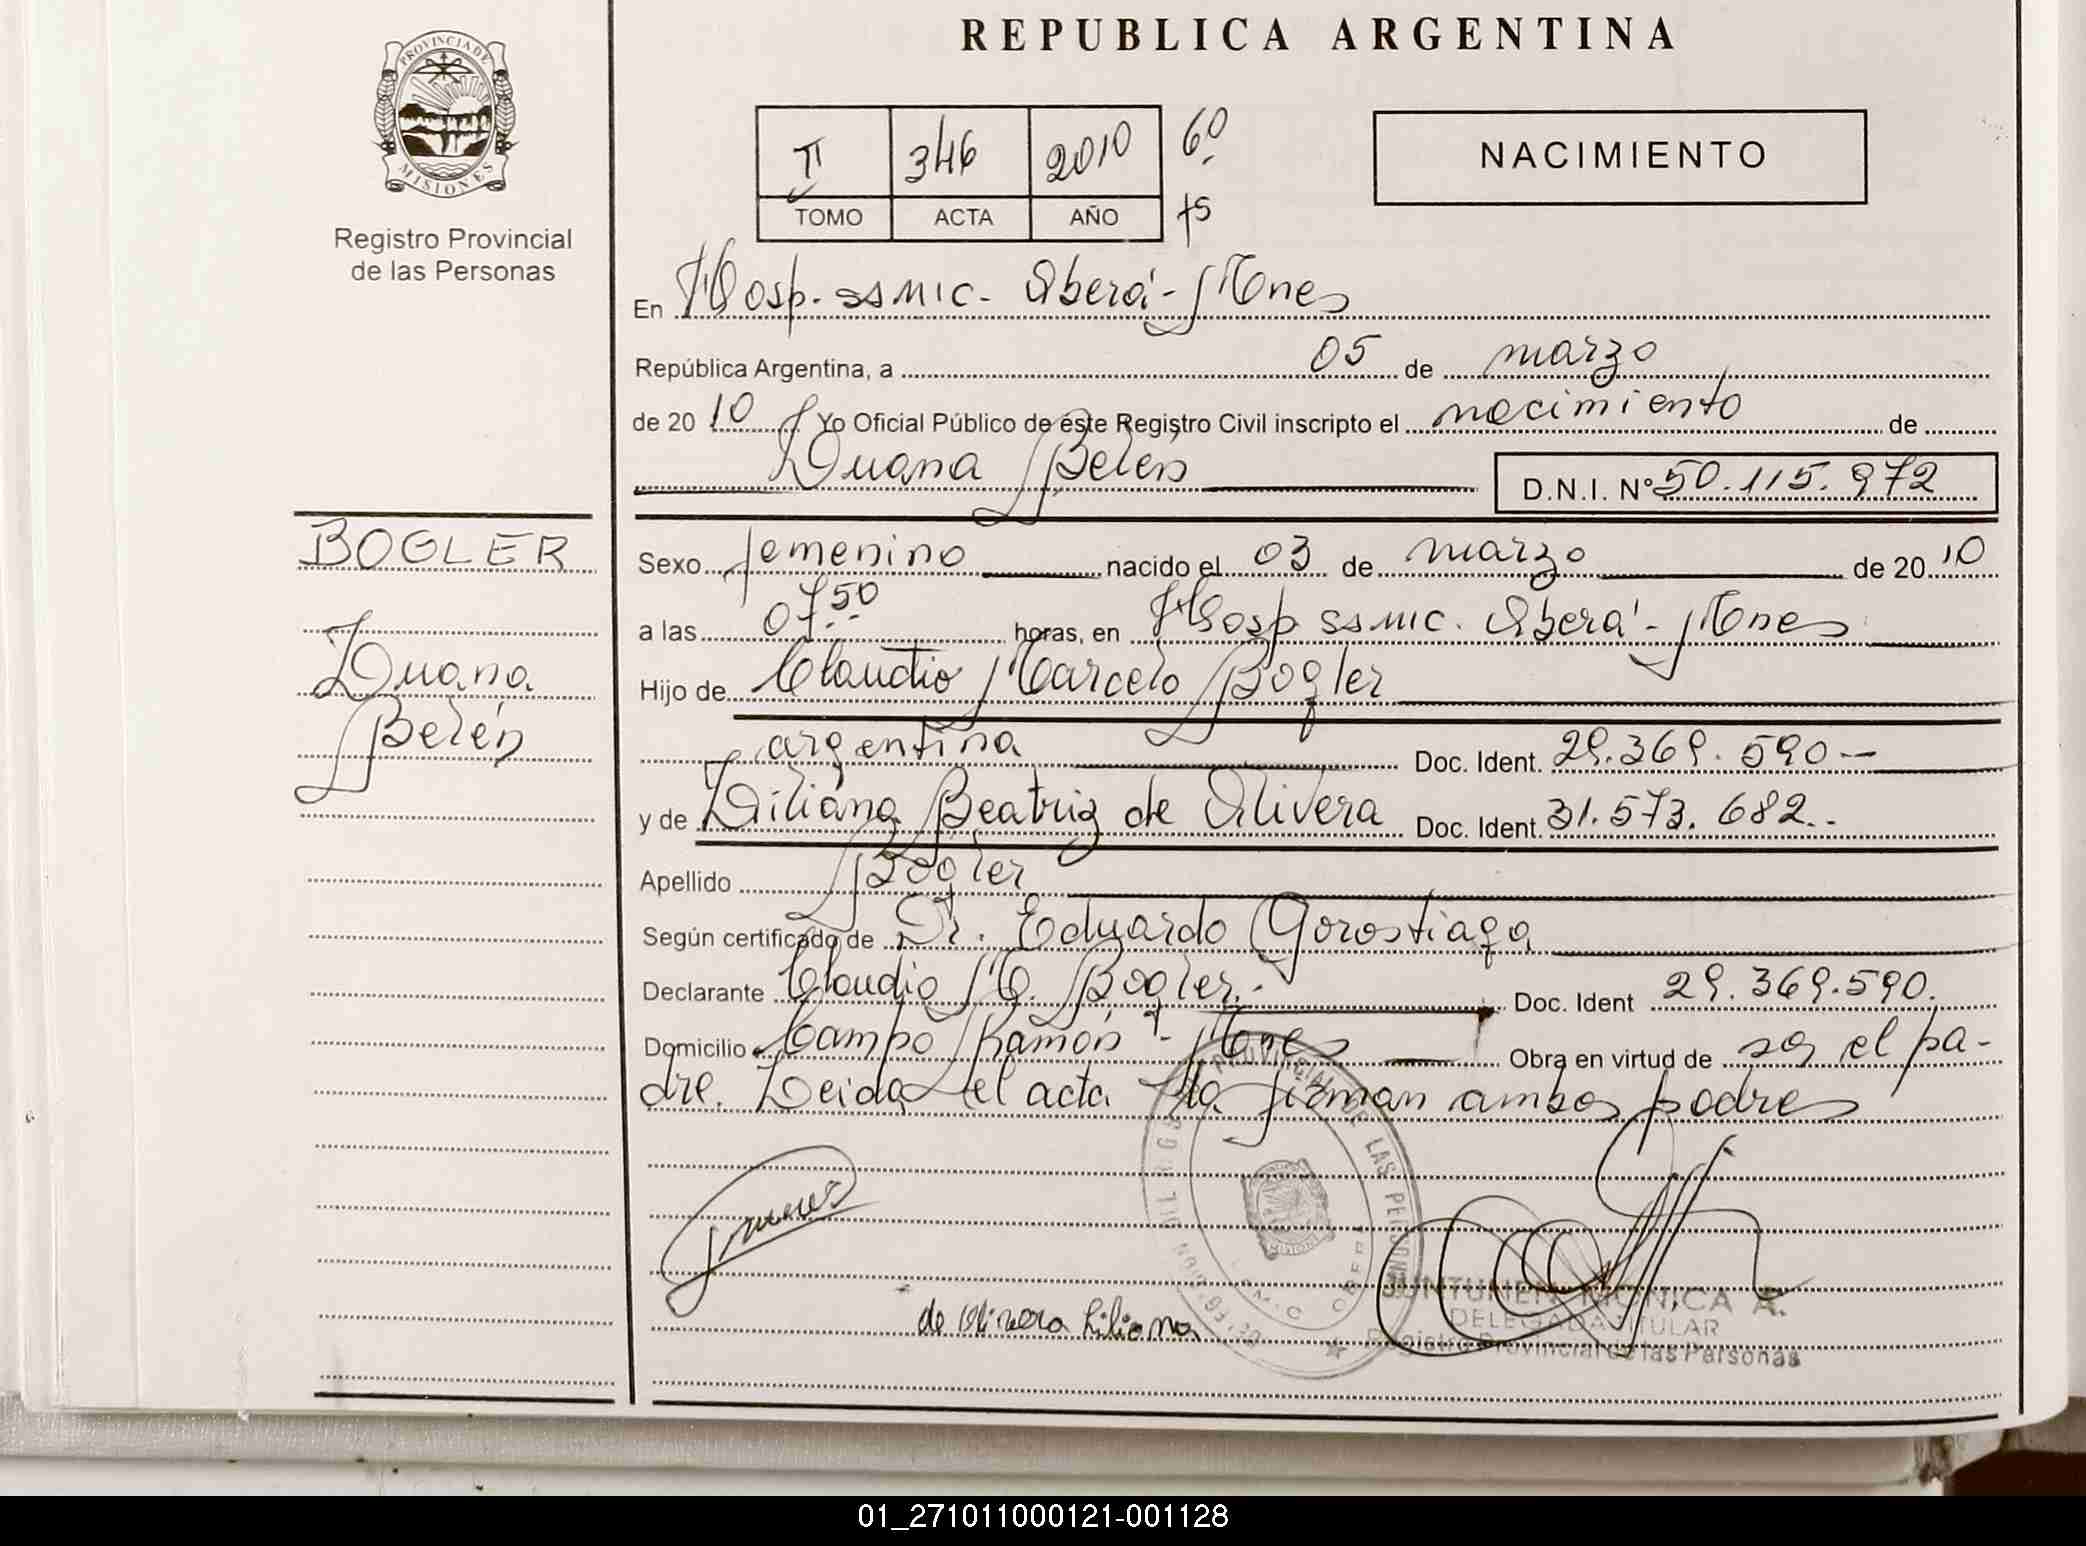 REPUBLICA ARGENTINA
PROVINCIA DE
MISIONES
Registro Provincial
de las Personas
II 346 2010 60
TOMO ACTA AÑO fs
NACIMIENTO
En Hosp. SSMIC. Oberá - Mnes
República Argentina, a 05 de marzo
de 20 10 Yo Oficial Público de éste Registro Civil inscripto el nacimiento de
Luana Belén D.N.I. Nº 50.115.972
BOGLER
Luana
Belén
Sexo femenino nacido el 03 de marzo de 20 10
a las 07.50 horas, en Hosp SSMIC. Oberá - Mnes
Hijo de Claudio Marcelo Bogler
argentina Doc. Ident. 29.369.590-
y de Liliana Beatriz de Olivera Doc. Ident. 31.573.682..
Apellido Bogler
Según certificado de Dr. Eduardo Gorostiaga
Declarante Claudio M. Bogler.- Doc. Ident 29.369.590.
Domicilio Campo Ramón - Mnes Obra en virtud de ser el pa-
dre. Leida el acta la firman ambos padres
de Olivera Liliana
JUNTUNEN MONICA A.
DELEGADA TITULAR
Registro Provincial de las Personas
01_271011000121-001128